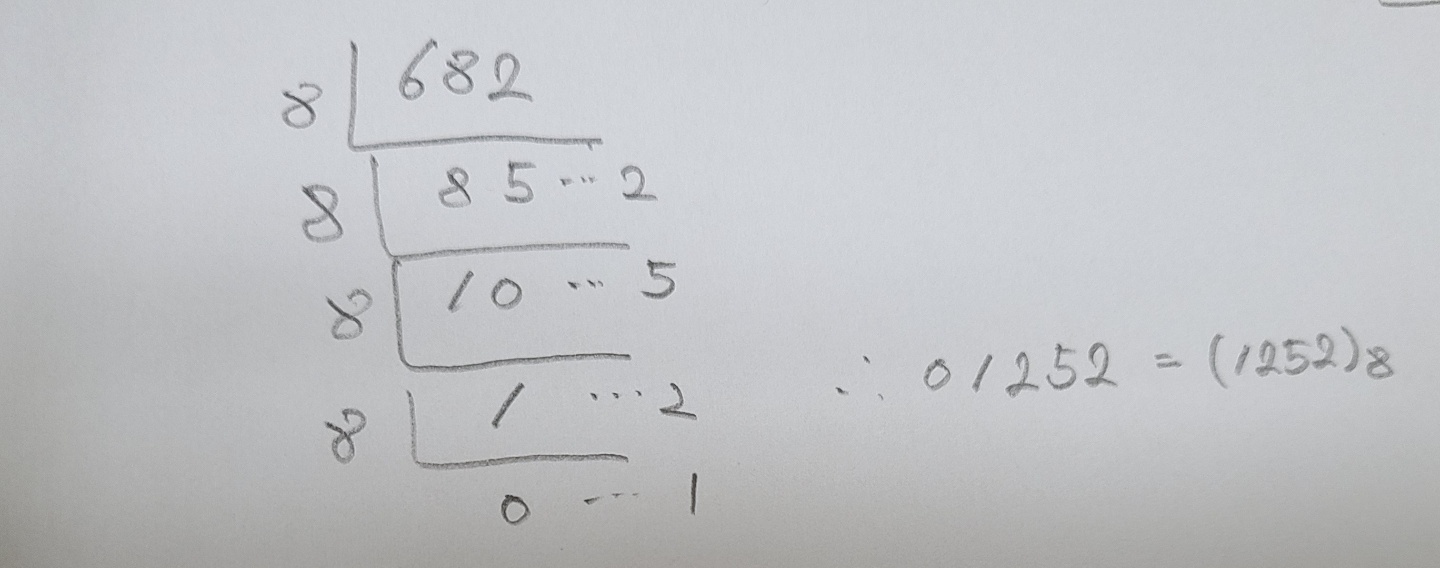 8 682
8 85 ... 2
8 10 ... 5
8 1 ... 2
0 ... 1
∴ 01252 = (1252)8